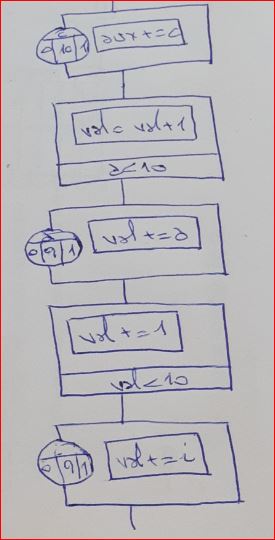 c
0 10 1
aux += c
val = val + 1
a < 10
0 9 1
val += a
val += 1
val < 10
i
0 9 1
val += i